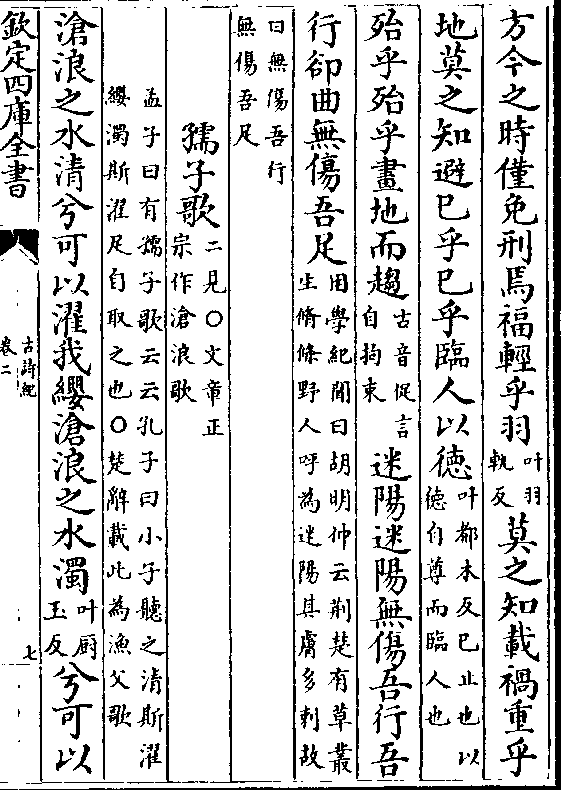 方今之時僅免刑焉福輕乎羽叶羽軌反莫之知載禍重乎
地莫之知避已乎已乎臨人以德叶都木反已止也以德自尊而臨人也
殆乎殆乎畫地而趨古音促言自拘束迷陽迷陽無傷吾行吾
行卻曲無傷吾足困學紀聞曰胡明仲云荆楚有草叢生脩條野人呼為迷陽其膚多刺故
曰無傷吾行無傷吾足
孺子歌二見○文章正宗作滄浪歌
孟子曰有孺子歌云云孔子曰小子聽之清斯濯纓濁斯濯足自取之也○楚辭載此為漁父歌
滄浪之水清兮可以濯我纓滄浪之水濁叶厨玉反兮可以
欽定四庫全書
古詩紀
卷二
七